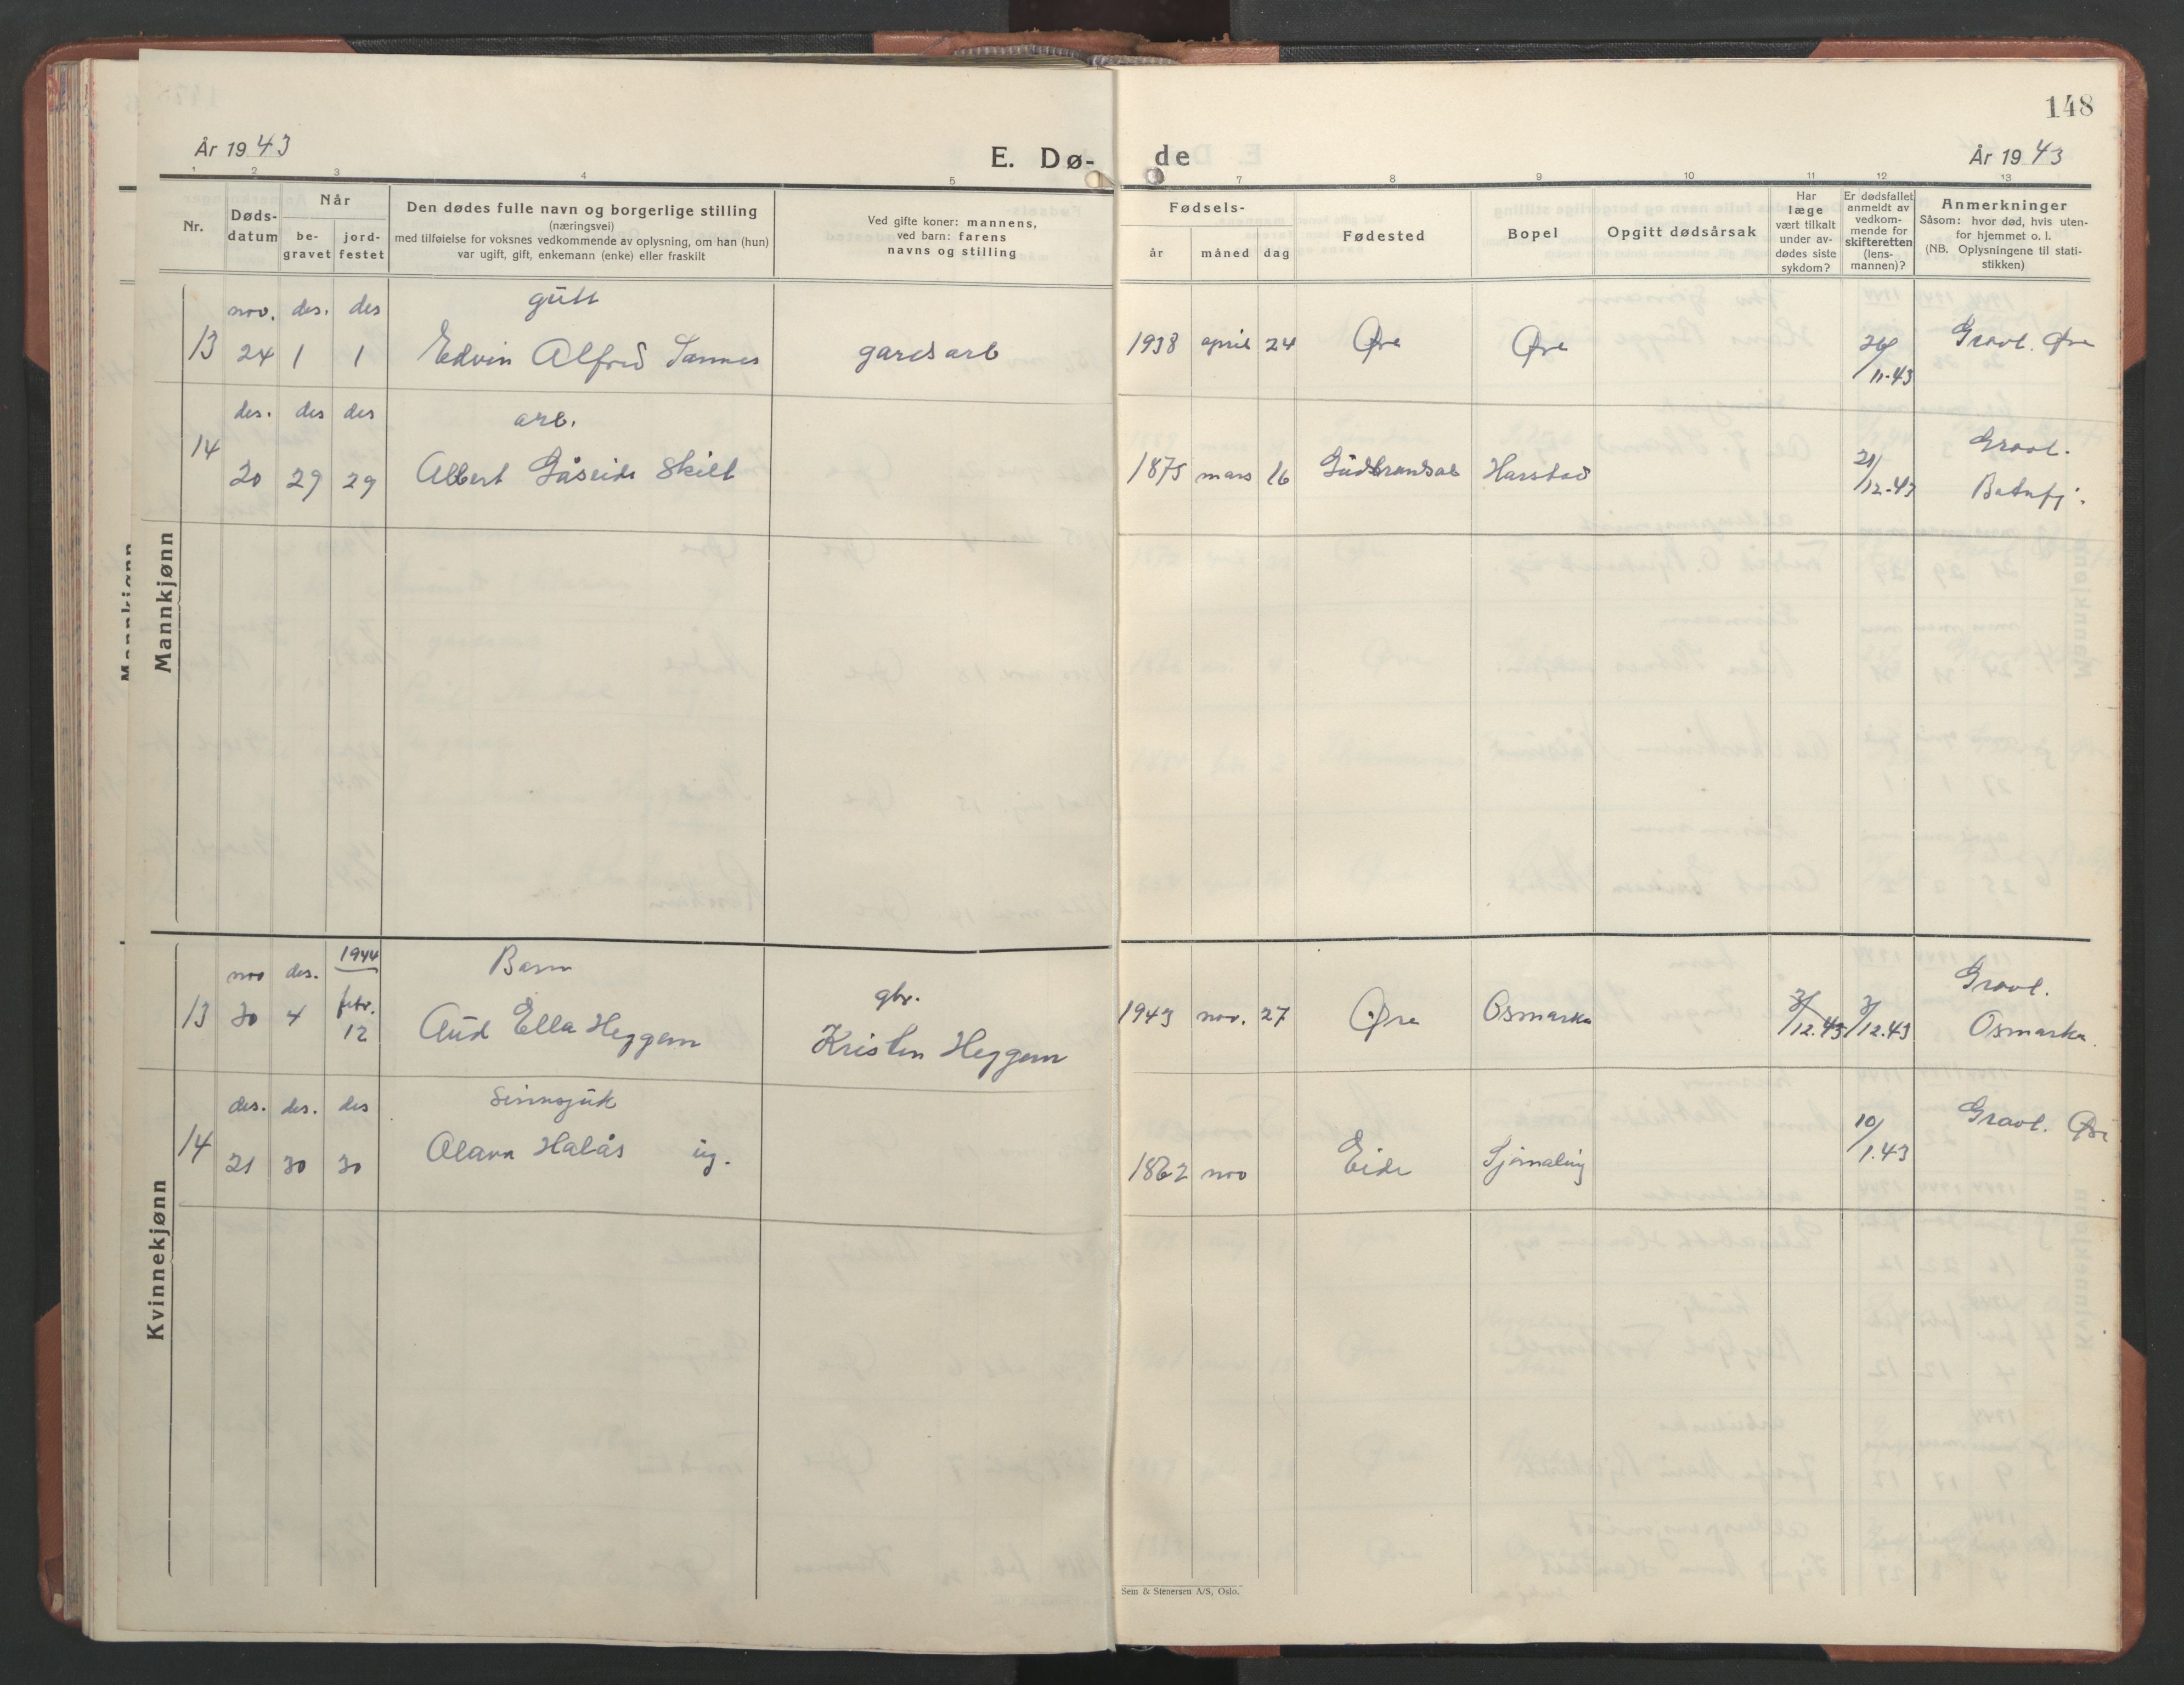 148
År 1943
E. Dø-
de
År 1943
1 2 3 4 5 7 8 9 10 11 12 13
Nr.
Døds-
datum
Når
be-
gravet
jord-
festet
Den dødes fulle navn og borgerlige stilling
(næringsvei)
med tilføielse for voksnes vedkommende av oplysning, om han (hun)
var ugift, gift, enkemann (enke) eller fraskilt
Ved gifte koner: mannens,
ved barn: farens
navns og stilling
Fødsels-
år måned dag
Fødested
Bopel
Opgitt dødsårsak
Har
læge
vært tilkalt
under av-
dødes siste
sykdom?
Er dødsfallet
anmeldt av
vedkom-
mende for
skifteretten
(lens-
mannen)?
Anmerkninger
Såsom: hvor død, hvis uten-
for hjemmet o. l.
(NB. Oplysningene til stati-
stikken)
Mannkjønn
nov. des. des gutt
13 24 1 1 Edvin Alfred Sannes gardsarb 1938 april 24 Øre Øre 26/11-43 Gravl. Øre
des. des des arb.
14 20 29 29 Albert Gåseide Skilt 1875 mars 16 Gudbrandsal Harstad 21/12-43 Gravl.
Batnfj.
Kvinnekjønn
1944
nov des. febr. Barn gbr. Gravl.
13 30 4 12 Aud Ella Heggem Kristen Heggem 1943 nov. 27 Øre Osmarka 3/12.43 3/12.43 Osmarka.
des. des. des sinnsjuk
14 21 30 30 Olava Halås ug. 1862 nov Eide Tjönnalmj 10/1.43 Gravl. Øre
Sem & Stenersen A/S, Oslo.